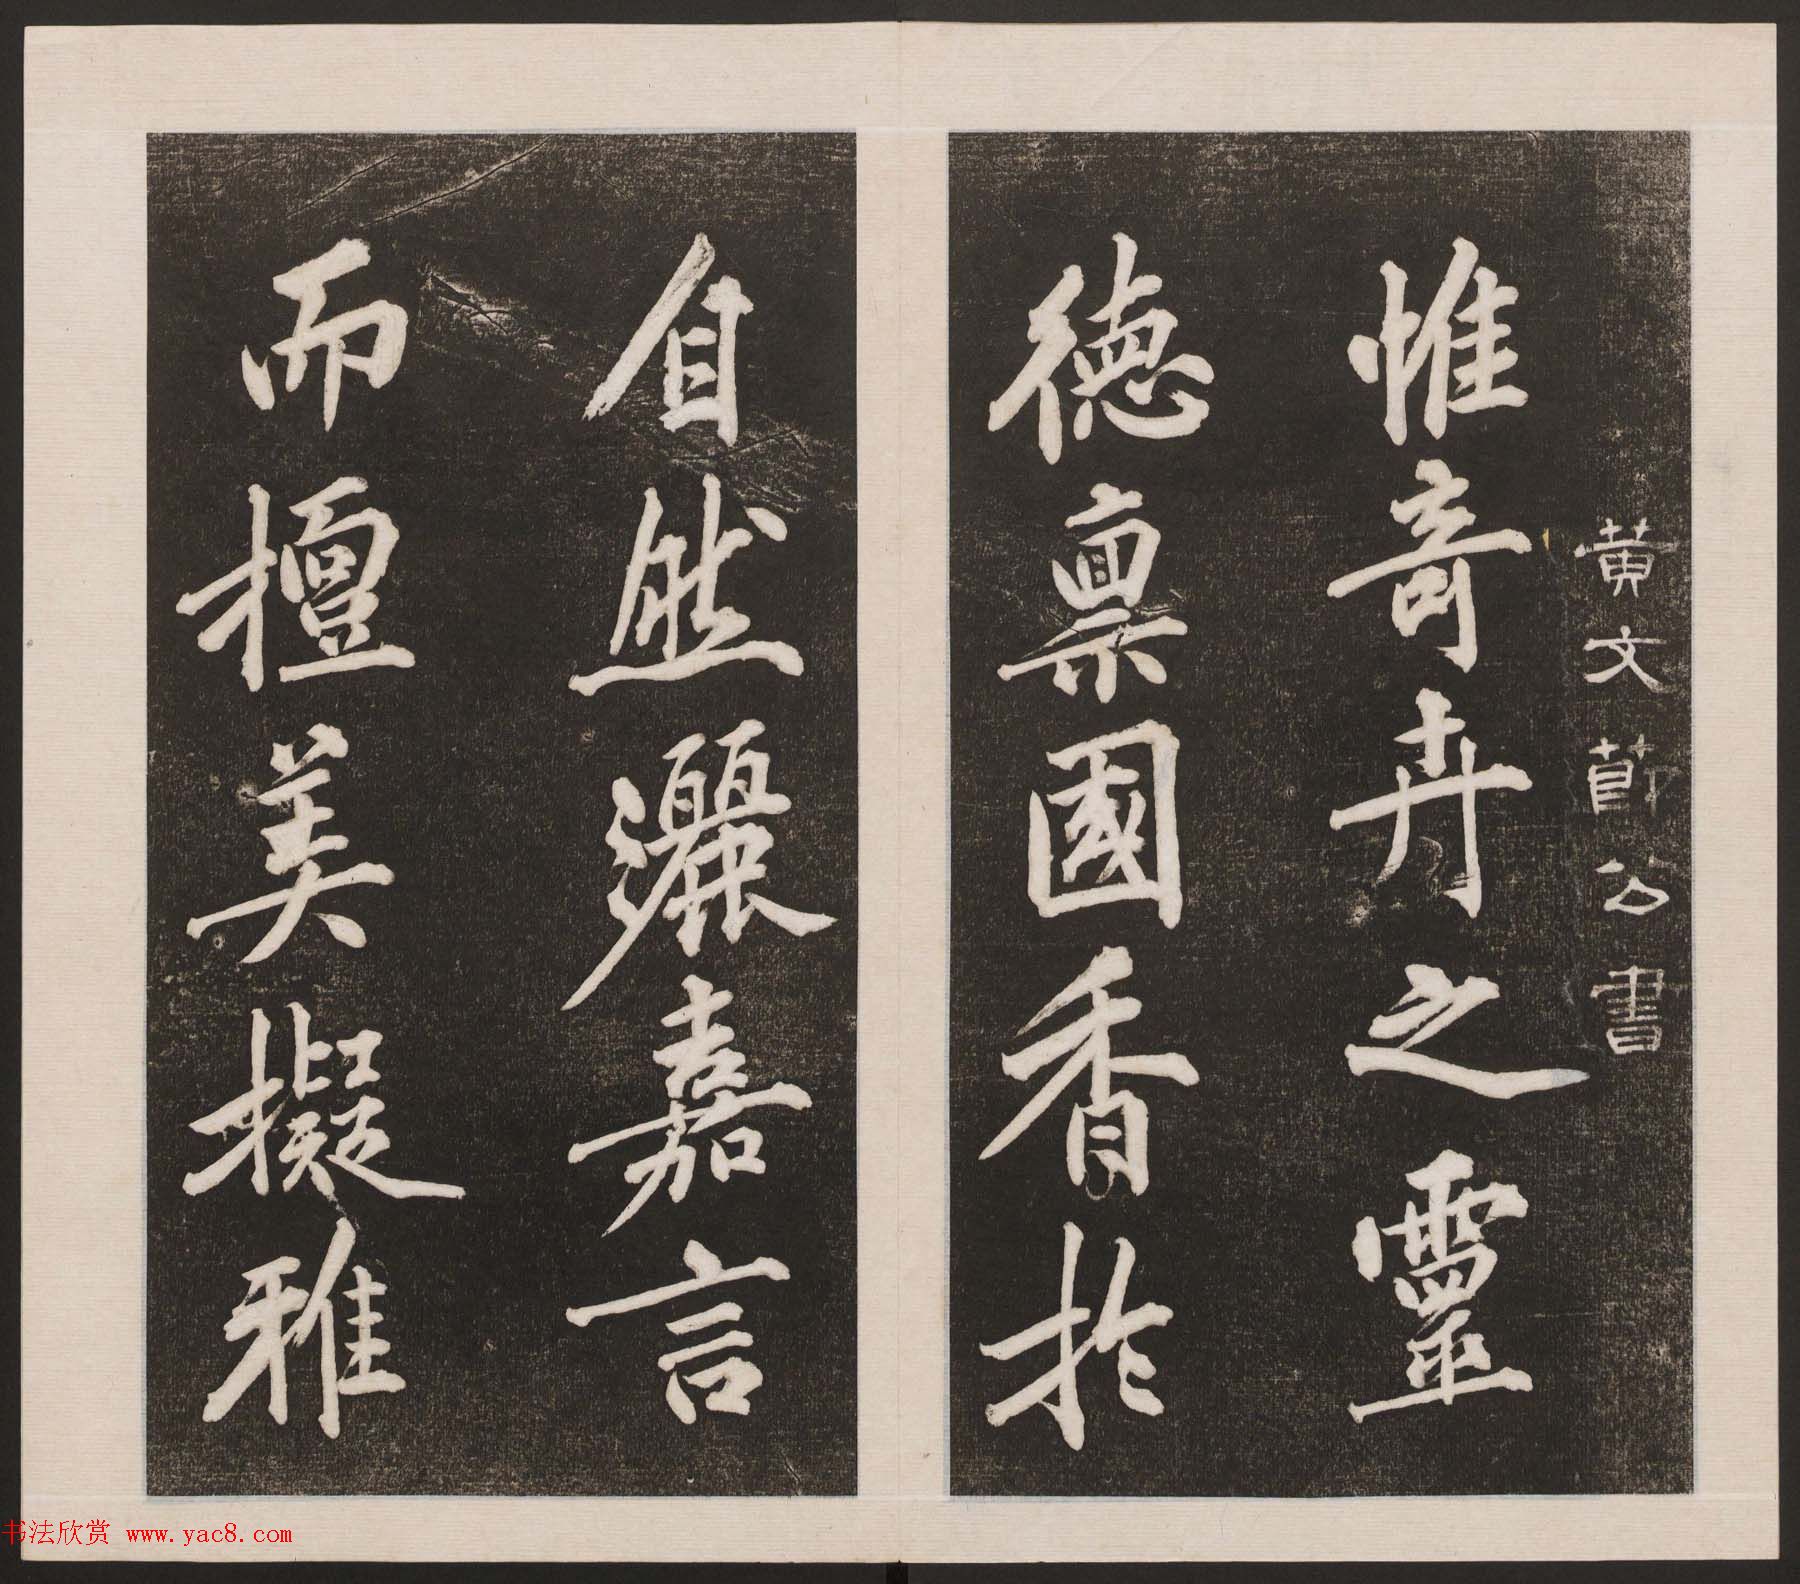 黄文節公書
惟奇卉之靈
德禀國香於
自然灑嘉言
而擅美擬雅
书法欣赏 www.yac8.com